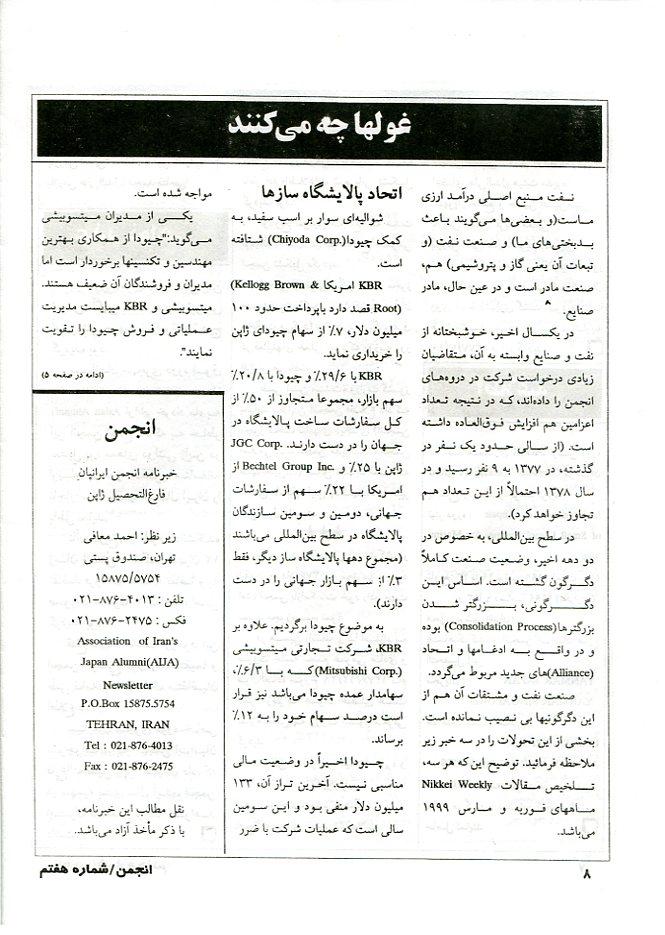 غولها چه می‌کنند
نـفت منبع اصلی درآمد ارزی
ماست(و بعضی‌ها می‌گویند باعث
بدبختی‌های ما) و صنعت نفت (و
تبعات آن یعنی گاز و پتروشیمی) هم،
صنعت مادر است و در عین حال، مادر
صنایع.
در یکسال اخیر، خوشبختانه از
نفت و صنایع وابسته به آن، متقاضیان
زیادی درخواست شرکت در دروه‌های
انجمن را داده‌اند، که در نتیجه تعداد
اعزامین هم افزایش فوق‌العاده داشته
است. (از سالی حدود یک نفر در
گذشته، در ۱۳۷۷ به ۹ نفر رسید و در
سال ۱۳۷۸ احتمالاً از این تعداد هم
تجاوز خواهد کرد).
در سطح بین‌المللی، به خصوص در
دو دهه اخیر، وضعیت صنعت کاملاً
دگرگون گشته است. اساس این
دگرگونی، بزرگتر شدن
بزرگترها(Consolidation Process) بوده
و در واقع به ادغامها و اتحاد
(Alliance)های جدید مربوط می‌گردد.
صنعت نفت و مشتقات آن هم از
این دگرگونیها بی نصیب نمانده است.
بخشی از این تحولات را در سه خبر زیر
ملاحظه فرمائید. توضیح این که هر سه،
تلخیص مقالات Nikkei Weekly
ماههای فوریه و مارس ۱۹۹۹
می‌باشد.
اتحاد پالایشگاه سازها
شوالیه‌ای سوار بر اسب سفید، به
کمک چیودا(Chiyoda Corp.) شتافته
است.
KBR امریکا (Kellogg Brown &
Root) قصد دارد باپرداخت حدود ۱۰۰
میلیون دلار، ۷٪ از سهام چیودای ژاپن
را خریداری نماید.
KBR با ۲۹/۶٪ و چیودا با ۲۰/۸٪
سهم بازار، مجموعا متجاوز از ۵۰٪ از
کل سفارشات ساخت پالایشگاه در
جهان را در دست دارند. JGC Corp.
ژاپن با ۲۵٪ و Bechtel Group Inc. از
امریکا بـا ۲۲٪ سـهم از سفارشات
جهانی، دومین و سومین سازندگان
پالایشگاه در سطح بین‌المللی می‌باشند
(مجموع دهها پالایشگاه ساز دیگر، فقط
۳٪ از سهم بازار جهانی را در دست
دارند).
به موضوع چیودا برگردیم. علاوه بر
KBR، شرکت تجارتی میتسوبیشی
(Mitsubishi Corp.) کـه بـا ۶/۳٪،
سهامدار عمده چیودا می‌باشد نیز قرار
است درصد سهام خود را به ۱۲٪
برساند.
چـیودا اخیراً در وضعیت مـالی
مناسبی نیست. آخرین تراز آن، ۱۳۳
میلیون دلار منفی بود و این سومین
سالی است که عملیات شرکت با ضرر
مواجه شده است.
یکی از مدیران میتسوبیشی
می‌گوید:"چیودا از همکاری بهترین
مهندسین و تکنسینها برخوردار است اما
مدیران و فروشندگان آن ضعیف هستند.
میتسوبیشی و KBR میبایست مدیریت
عملیاتی و فروش چیودا را تقویت
نمایند".
(ادامه در صفحه ۵)
انجمن
خبرنامه انجمن ایرانیان
فارغ‌التحصیل ژاپن
زیر نظر: احمد معافی
تهران، صندوق پستی
۱۵۸۷۵/۵۷۵۴
تلفن : ۴۰۱۳-۸۷۶-۰۲۱
فکس : ۲۴۷۵-۸۷۶-۰۲۱
Association of Iran's
Japan Alumni(AIJA)
Newsletter
P.O.Box 15875.5754
TEHRAN, IRAN
Tel : 021-876-4013
Fax : 021-876-2475
نقل مطالب این خبرنامه،
با ذکر مأخذ آزاد می‌باشد.
انجمن/شماره هفتم
۸